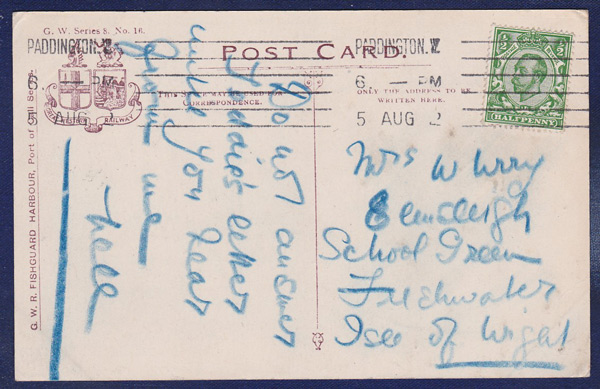 G. W. Series 8. No. 16.
PADDINGTON. W.
6 — PM
5 AUG
POST CARD.
PADDINGTON. W.
6 — PM
5 AUG 2
HALFPENNY
GREAT WESTERN RAILWAY
THIS SPACE MAY BE USED FOR
CORRESPONDENCE.
ONLY THE ADDRESS TO BE
WRITTEN HERE.
G. W. R. FISHGUARD HARBOUR, Port of Call Series.
Do not answer
letter
until you hear
from me
Nell
Mrs W Wray
School Green
Freshwater
Isle of Wight